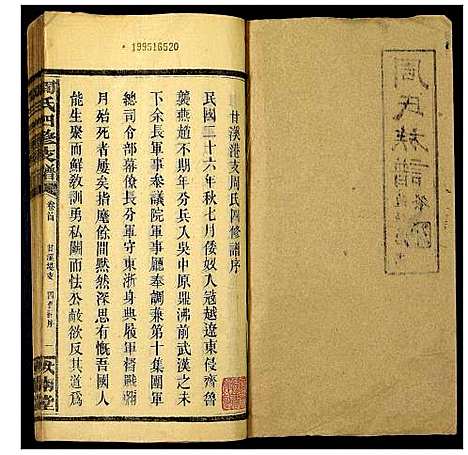 199516520
周氏族譜
甘溪港支周氏四修譜序
民國二十六年秋七月倭奴入寇越遼東侵齊魯
襲燕趙不期年分兵入吳中原鼎沸前武漢之未
下余長軍事參議院軍事廳奉調兼第十集團軍
總司令部幕僚長軍守東浙身典屢軍督戰
月殆死者屢矣指余間黙然深思有慨吾國人
能生聚而鮮敎訓勇私鬭而怯公敵欲反其道爲
周氏四修支譜
卷首
四修序
一
堂